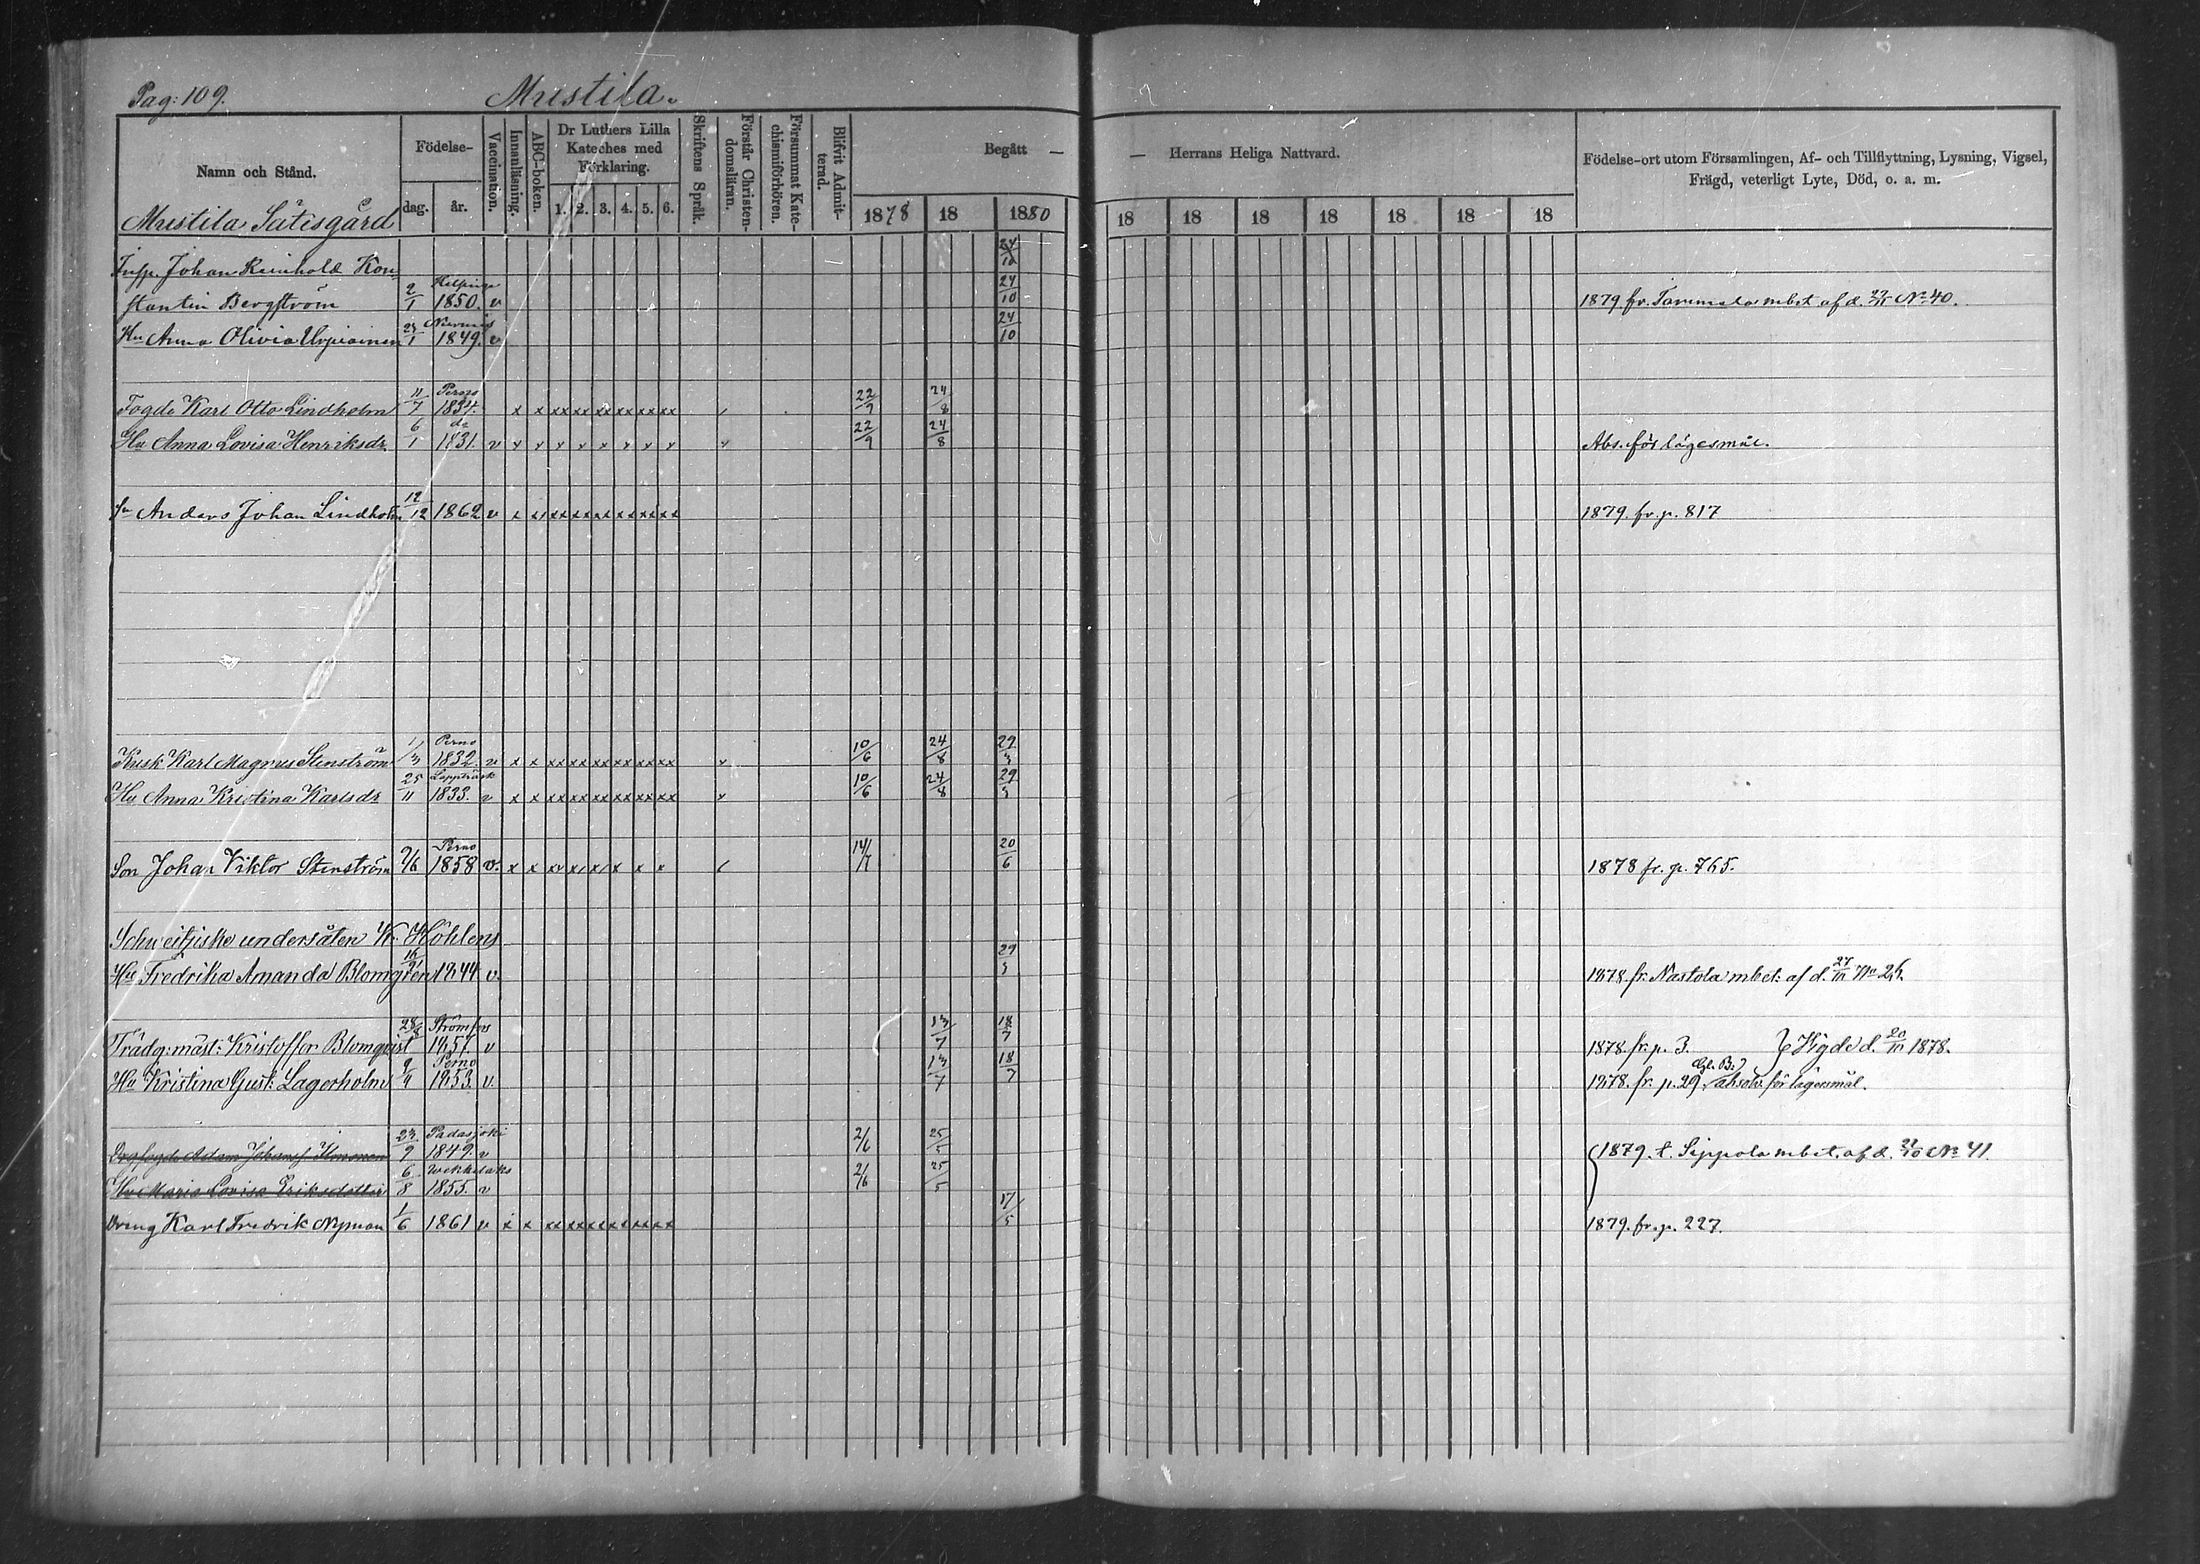 Pag: 109. Mustila.
Namn och Stånd. Födelse- dag. år. Vaccination. Innanläsning. ABC-boken. Dr Luthers Lilla Kateches med Förklaring. 1. 2. 3. 4. 5. 6. Skriftens Språk. Förstår Christendomsläran. Försummat Katechismiförhören. Blifvit Admitterad. Begått — — Herrans Heliga Nattvard. Födelse-ort utom Församlingen, Af- och Tillflyttning, Lysning, Vigsel, Frägd, veterligt Lyte, Död, o. a. m.
Mustila Sätisgård 1878 18 1880 18 18 18 18 18 18 18
Insp. Johan Reinhold Kon- 24/10
Helsinge
stantin Bergström 2/1 1850. v 24/10 1879 fr. Tammela mbet af d. 22/11 No 40.
Hu Anna Olivia Urpiainen 1849. v 24/10
Perno
Fogde Karl Otto Lindholm 11/7 1834. x x xx xx xx xx xx xx 22/9 24/8
do
Hu Anna Lovisa Henriksdr 6/1 1831. v v v v v v v v v v 22/9 24/8 Abs. för lägesmål.
Sn Anders Johan Lindholm 12/12 1862 v x xx xx xx xx xx xx 1879. fr. p. 817
Perno
Kusk Karl Magnus Stenström 1/3 1832. v x x xx xx xx xx xx xx v 10/6 24/8 29/3
Lappträsk
Hu Anna Kristina Karlsdr 25/11 1833. v x x xx xx xx xx xx xx v 10/6 24/8 29/3
Perno
Son Johan Viktor Stenström 7/6 1858 v. x x 14/7 20/6 1878 fr. p. 765.
Schweitziske undersåten Kr. Höhlens
Hu Fredrika Amanda Blomgren 1844 v. 29/3 1878. fr. Nastola mbet: af d. 27/11 No 26.
Strömfors
Trädg: mäst: Kristoffer Blomqvist 28/8 1857 v 13/7 18/7 1878. fr. p. 3. } Vigde d. 20/10 1878.
Perno
Hu Kristina Gust: Lagerholm 9/4 1853. v. 13/7 18/7 1878. fr. p. 29. absolv. för lägersmål.
Padasjoki
Adam Johansf 23/9 1849. v 2/6 25/5 { 1879. t. Sippola mbet. af d. 21/10 No 41
Hu Maria Lovisa Eriksdotter 6/8 1855. v 2/6 25/5
Dreng Karl Fredrik Nyman 1/6 1861 v x x xx xx xx xx xx xx 17/5 1879. fr. p. 227.